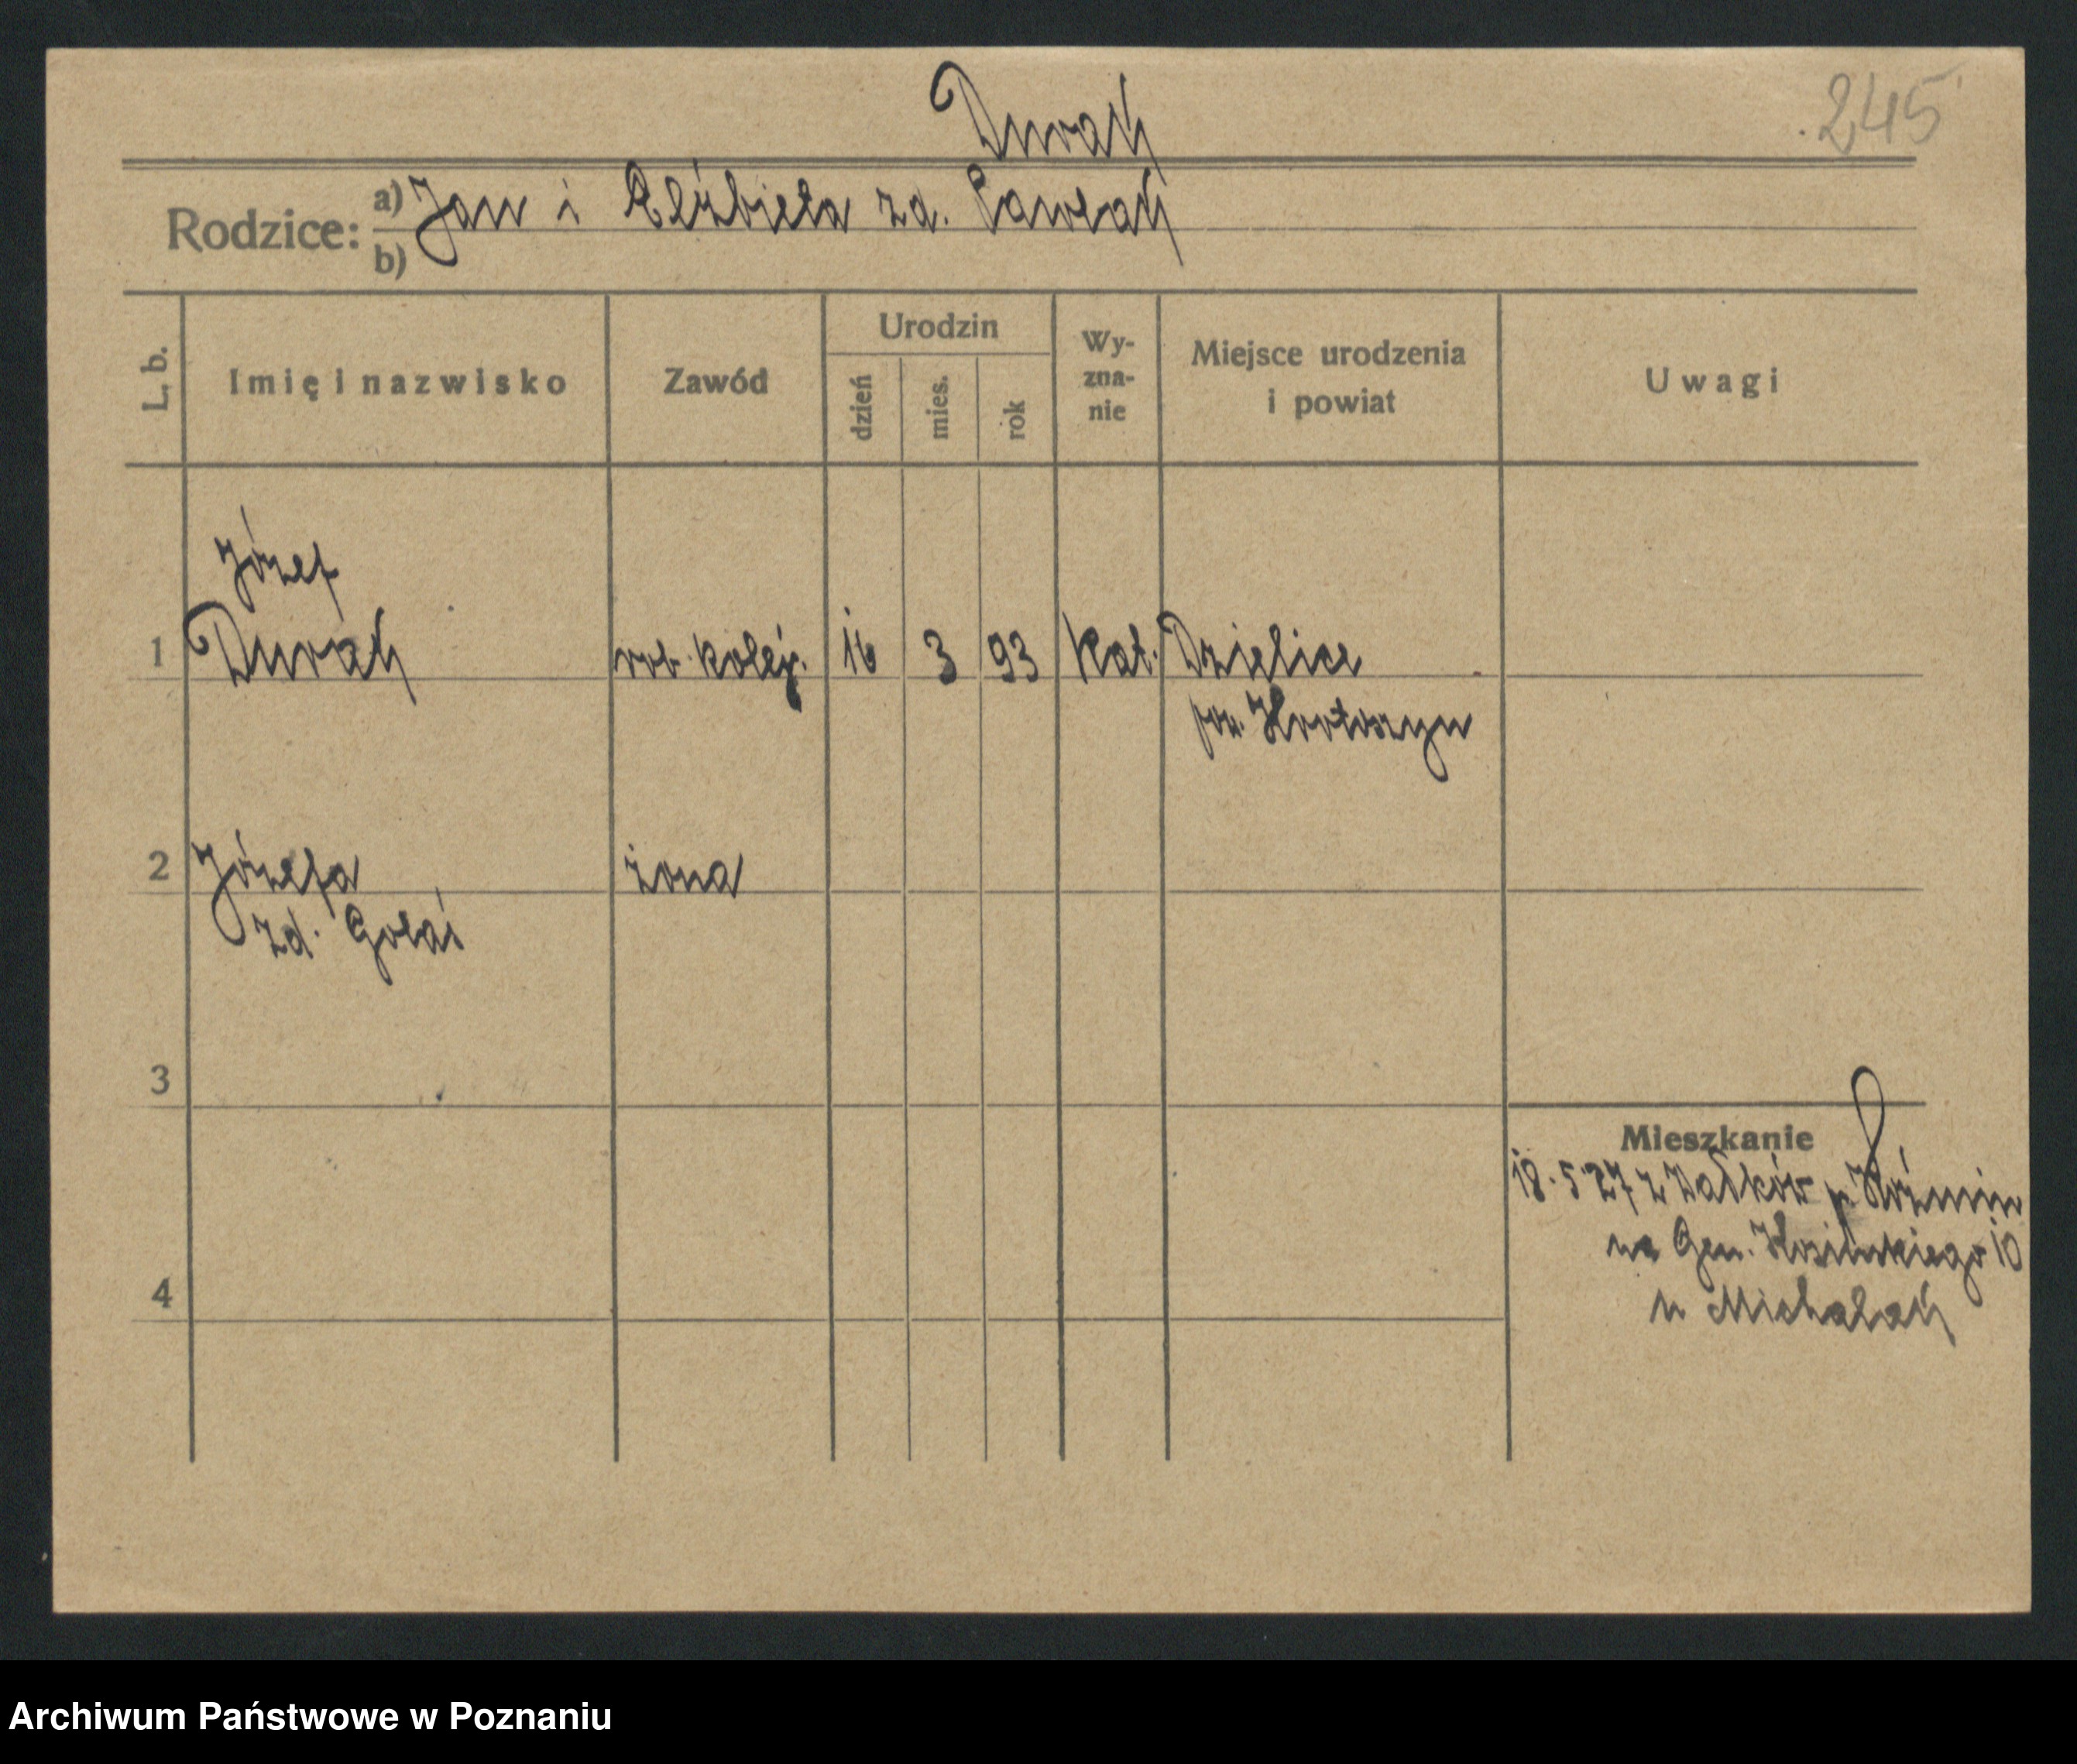 Durak
245
Rodzice: a) Jan i Elżbieta zd. Pawlak
b)
L. b. Imię i nazwisko Zawód Urodzin dzień mies. rok Wy-zna-nie Miejsce urodzenia i powiat Uwagi
Józef
1 Durak rob. kolej. 16 3 93 kat. Dzielice
pow. Krotoszyn
2 Józefa żona
zd. Gołaś
3
Mieszkanie
18.5.27 z Wałków p. Koźmin
na Gen. Kosińskiego 10
4
u Michalak
Archiwum Państwowe w Poznaniu